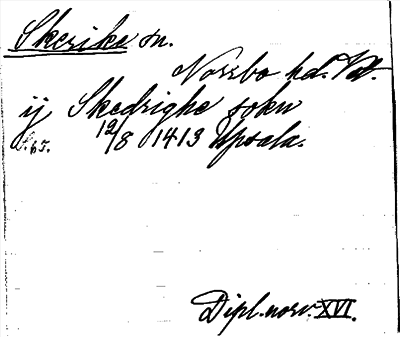 Skerike sn.
Norrbo hd. Vstm.
ij Skedrighe sokn
s. 65. 12/8 1413 Upsala.
Dipl. norv. XVI.